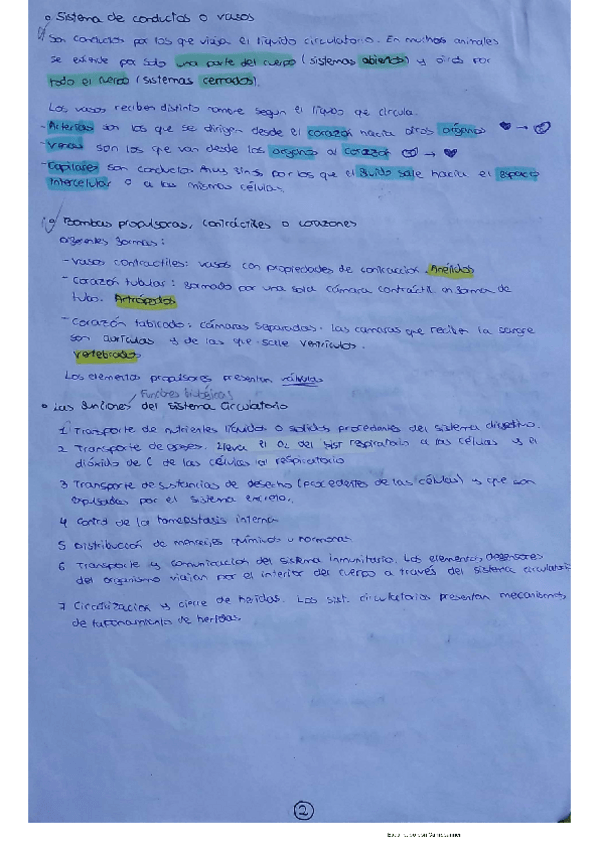 Sistema de conductos o vasos
Son conductos por los que viaja el líquido circulatorio. En muchos animales
se extiende por solo una parte del cuerpo (sistemas abiertos) y otros por
todo el cuerpo (sistemas cerrados).
Los vasos reciben distinto nombre según el líquido que circula.
- Arterias son los que se dirigen desde el corazón hacia otros órganos
- Venas son los que van desde los órganos al corazón
- Capilares son conductos muy finos por los que el fluido sale hacia el espacio
intercelular o a las mismas células.
Bombas propulsoras, contráctiles o corazones
Diferentes formas:
- Vasos contractiles: vasos con propiedades de contracción. Anélidos
- Corazón tubular: formado por una sola cámara contráctil en forma de
tubo. Artrópodos
- Corazón tabicado: cámaras separadas. Las cámaras que reciben la sangre
son aurículas y de las que sale ventrículos.
vertebrados
Los elementos propulsores presentan válvulas
Funciones biológicas
Las funciones del sistema circulatorio
1 Transporte de nutrientes líquidos o sólidos procedentes del sistema digestivo.
2 Transporte de gases. Lleva el O2 del sist respiratorio a las células y el
dióxido de C de las células al respiratorio
3 Transporte de sustancias de desecho (procedentes de las células) y que son
expulsadas por el sistema excretor.
4 Control de la homeostasis interna
5 Distribución de mensajes químicos u hormonas
6 Transporte y comunicación del sistema inmunitario. Los elementos defensores
del organismo viajan por el interior del cuerpo a través del sistema circulatorio
7 Cicatrización y cierre de heridas. Los sist. circulatorios presentan mecanismos
de taponamiento de heridas.
2